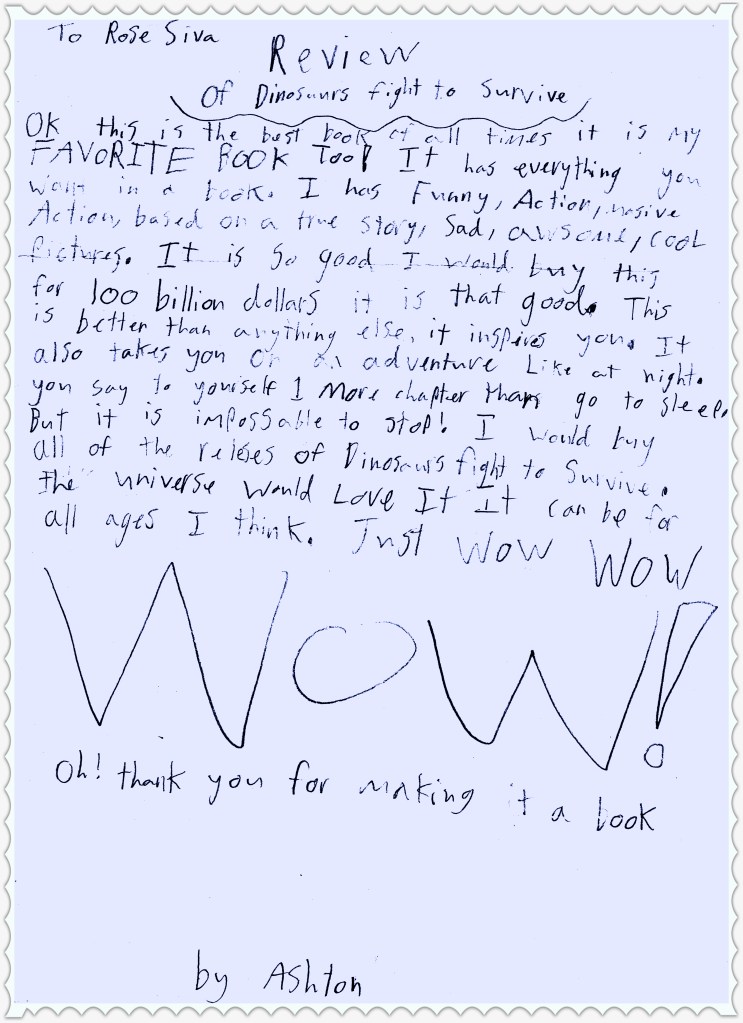 To Rose Siva
Review
Of Dinosaurs fight to Survive
OK this is the best book of all times it is my
FAVORITE BOOK Too! It has everything you
want in a book. I has Funny, Action, masive
Action, based on a true story, Sad, awsome, cool
pictures. It is so good I would buy this
for 100 billion dollars it is that good. This
is better than anything else, it inspires you. It
also takes you on an adventure Like at night.
you say to yourself 1 More chapter then go to sleep.
But it is impossable to stop! I would buy
all of the releses of Dinosaurs fight to Survive.
The universe would Love It It can be for
all ages I think. Just WOW WOW
WOW!
Oh! thank you for making it a book
by Ashton